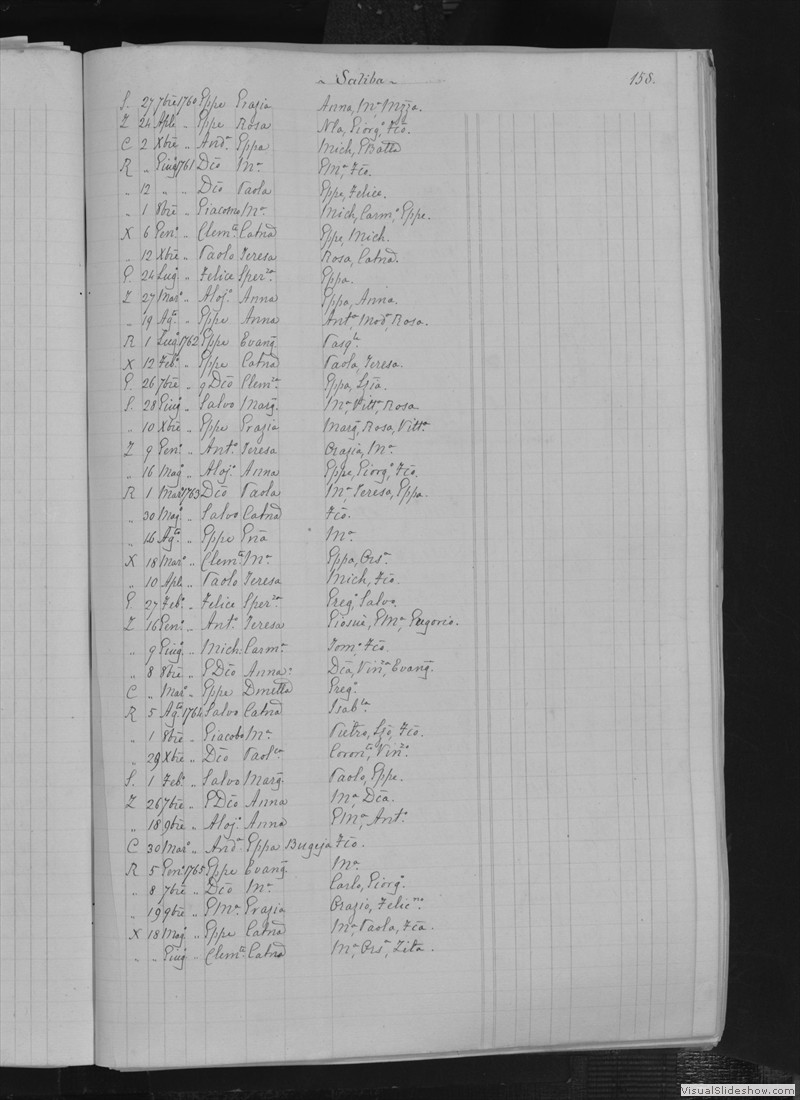 ~ Saliba ~ 158.
S. 27 7bre 1760 Gppe Grazia Anna, Ma Mzza.
Z 24 Aple „ Gppe Rosa Nla, Giorgo, Fco.
C 2 Xbre „ Anda Gppa Mich, GBatta
R „ Giugo 1761 Dco Ma GMa, Fco.
„ 12 „ „ Dco Paola Gppe, Felice.
„ 1 8bre „ Giacomo Ma Mich, Carmo, Gppe.
X 6 Geno „ Clemte Catna Gppe, Mich.
„ 12 Xbre „ Paolo Teresa Rosa, Catna.
G. 24 Lug „ Felice Sperza Gppa.
Z 27 Maro „ Alojo Anna Gppa, Anna.
„ 19 Agto „ Gppe Anna Anta, Modo, Rosa.
R 1 Lugo 1762 Gppe Evang Pasqle.
X 12 Febo „ Gppe Catna Paola, Teresa.
G. 26 7bre „ q Dco Clemza Gppa, Lzia.
S. 28 Giugo „ Salvo Marga Ma, Vitta, Rosa
„ 10 Xbre „ Gppe Grazia Marga, Rosa, Vitta
Z 9 Geno „ Anto Teresa Orazia, Ma
„ 16 Mago „ Alojo Anna Gppe, Giorgo, Fco.
R 1 Maro 1763 Dco Paola Ma, Teresa, Gppa.
„ 30 Mago „ Salvo Catna Fco.
„ 16 Agto „ Gppe Ma
X 18 Maro „ Clemte Ma Gppa, Orsa
„ 10 Aple „ Paolo Teresa Mich, Fco.
G. 27 Febo „ Felice Sperza Grego, Salvo.
Z 16 Geno „ Anto Teresa Giosue, GMa,
„ 9 Giugo „ Mich Carma Tomo, Fco.
„ 8 8bre „ GDco Anna Dca, Vinza, Evang.
C „ Maro „ Gppe Dmetta Grego.
R 5 Agto 1764 Salvo Catna Isabla
„ 1 8bre „ Giacobo Ma Pietro, Lzo, Fco.
„ 29 Xbre „ Dco Paolca Corona, Vinzo
S. 1 Febo „ Salvo Marga Paolo, Gppe.
Z 26 7bre „ GDco Anna Ma, Dca.
„ 18 9bre „ Alojo Anna GMa, Anto
C 30 Maro „ Anda Gppa Bugeja Fco.
R 5 Geno 1765 Gppe Evang. Ma
„ 8 7bre „ Dco Ma Carlo, Giorgo.
„ 19 9bre „ GMa Grazia Orazio, Felicno
X 18 Mago „ Gppe Catna Ma, Paola, Fca.
„ „ Giugo „ Clemte Catna Ma, Orsa, Zita.
VisualSlideshow.com